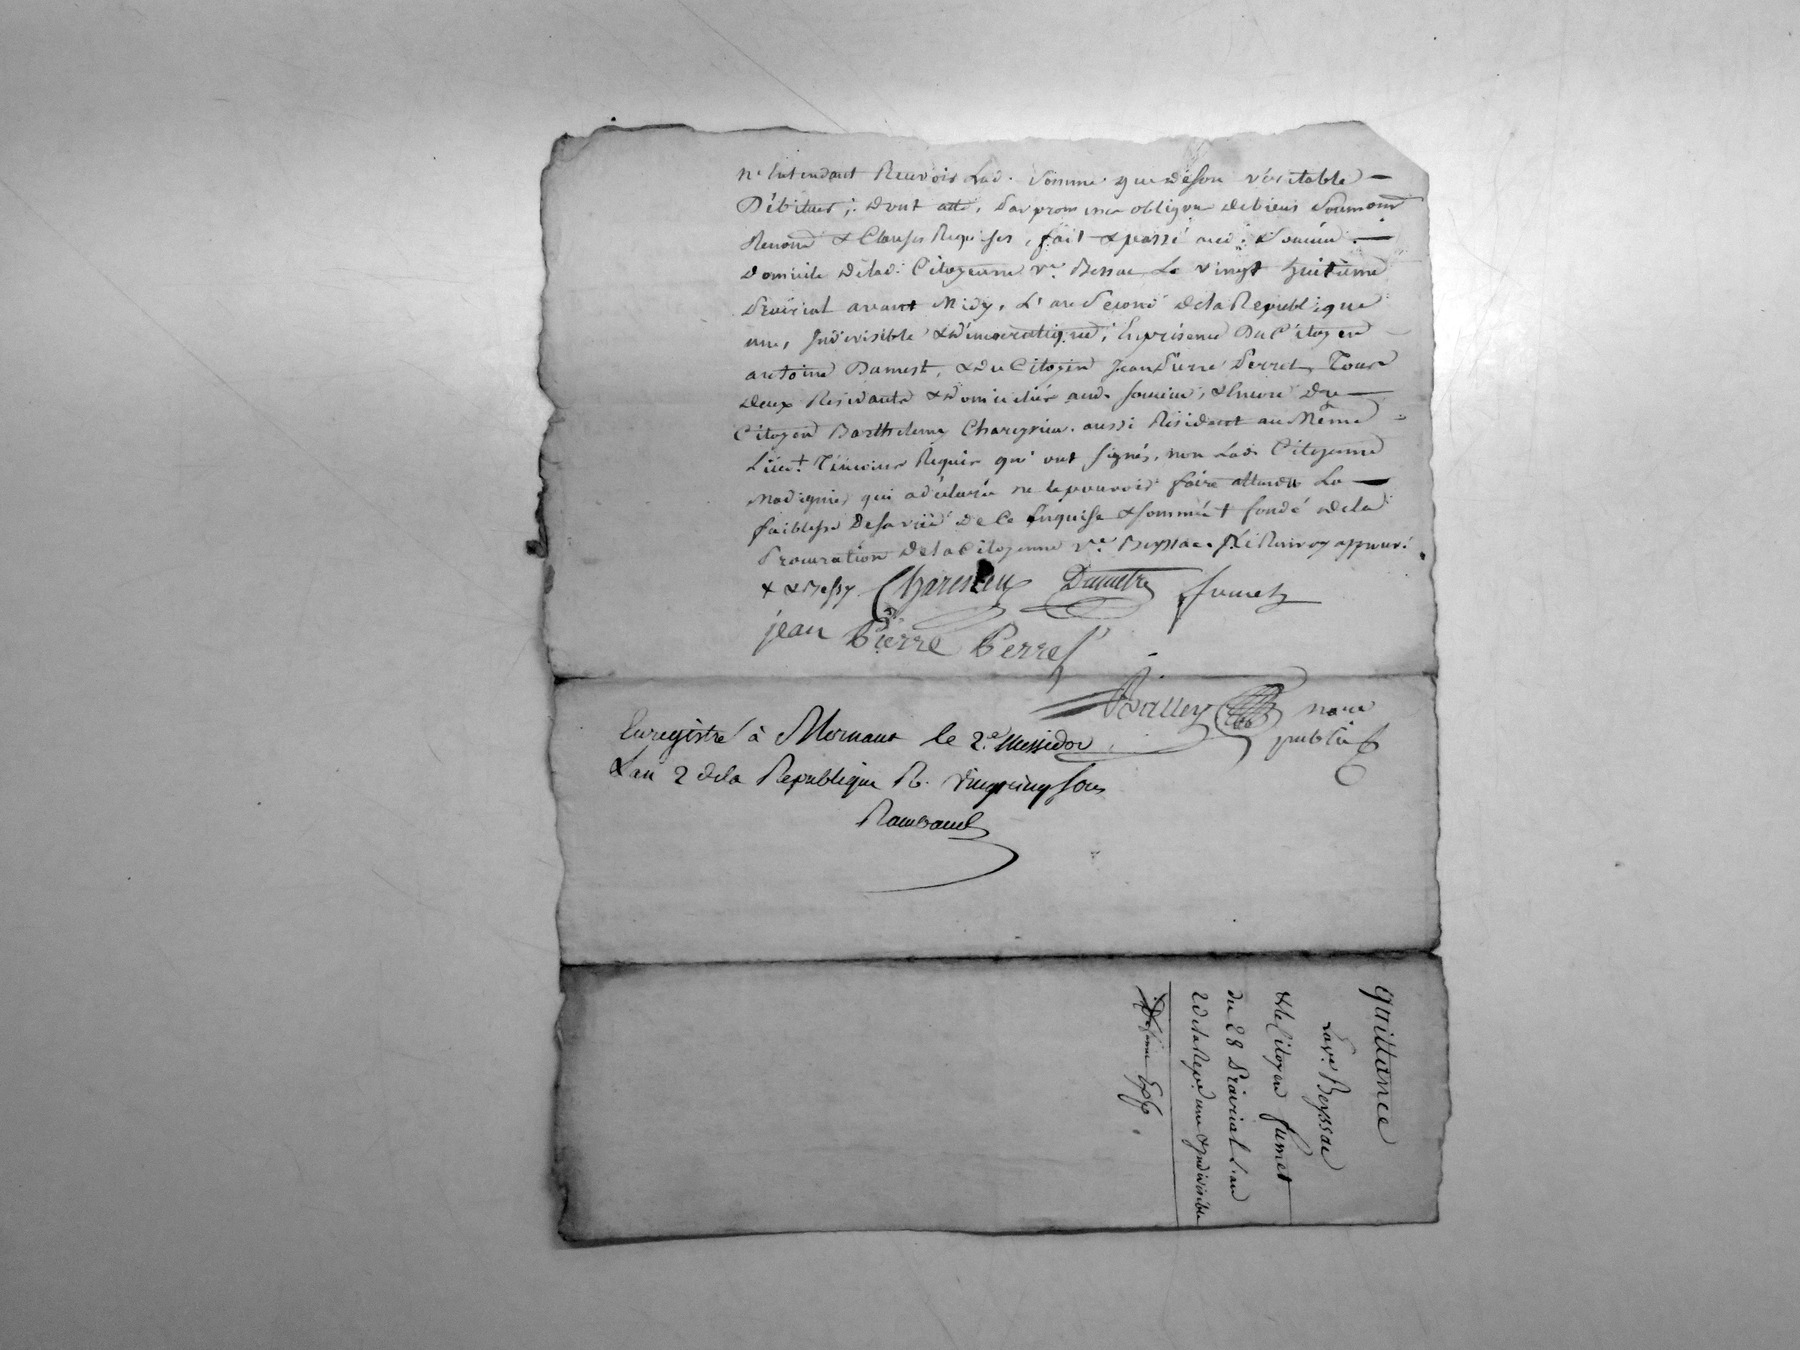 n'Entendant Recevoir lad. Somme que deson véritable
Débiteur; dont acte, Par promesse obligon de biens Soumons
Renond & Clauses Requises, fait & passé aud. Soucieu
domicile delad. Citoyenne ve. Bessac Le vingt huitieme
Prairial avant Midy, L'an Second dela Republique
une, Indivisible & démocratique, En présence Du Citoyen
antoine Damest, & du Citoyen Jean Pierre Perret, Tous
deux Résidants & domiciliés aud. Soucieu, & Encore Du
Citoyen Barthelemy Chareysieu. aussi Résidant au Même
Lieu + Témoins Requis qui ont signés, non lad. Citoyenne
qui a déclarée ne le pouvoir faire attendu La
faiblesse De sa vüe De Ce Enquise & sommée + fondé de la
Procuration de la Citoyenne ve. Beyssac. approuvé
+ & Bessy. Charesieu Dumetre fumet
jean Pierre Perret
Balley nore
public
Enregistré à Mornant le 2.e Messidor
L'an 2 dela Republique R. vingt cinq sous
Rambaud
quittance
La ve. Beyssac
& le Citoyen fumet
du 28 Prairial L'an
2 de la Repe. une & Indivisible